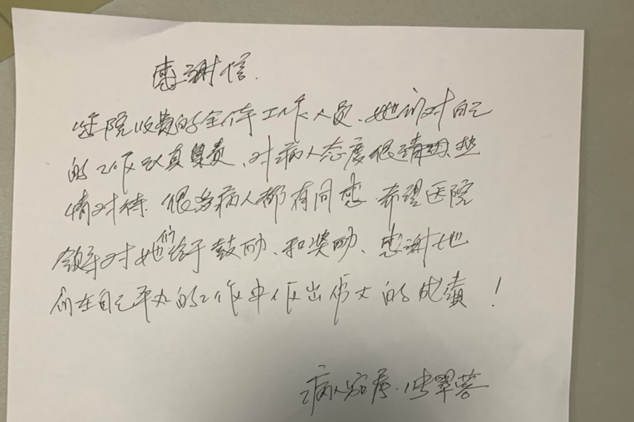 感谢信
医院收费的全体工作人员、她们对自己
的工作认真负责、对病人态度很清切热
情对待 很多病人都有同感 希望医院
领导对她们给于鼓励、和奖励、感谢她
们在自己平凡的工作中作出伟大的成绩！
病人家属